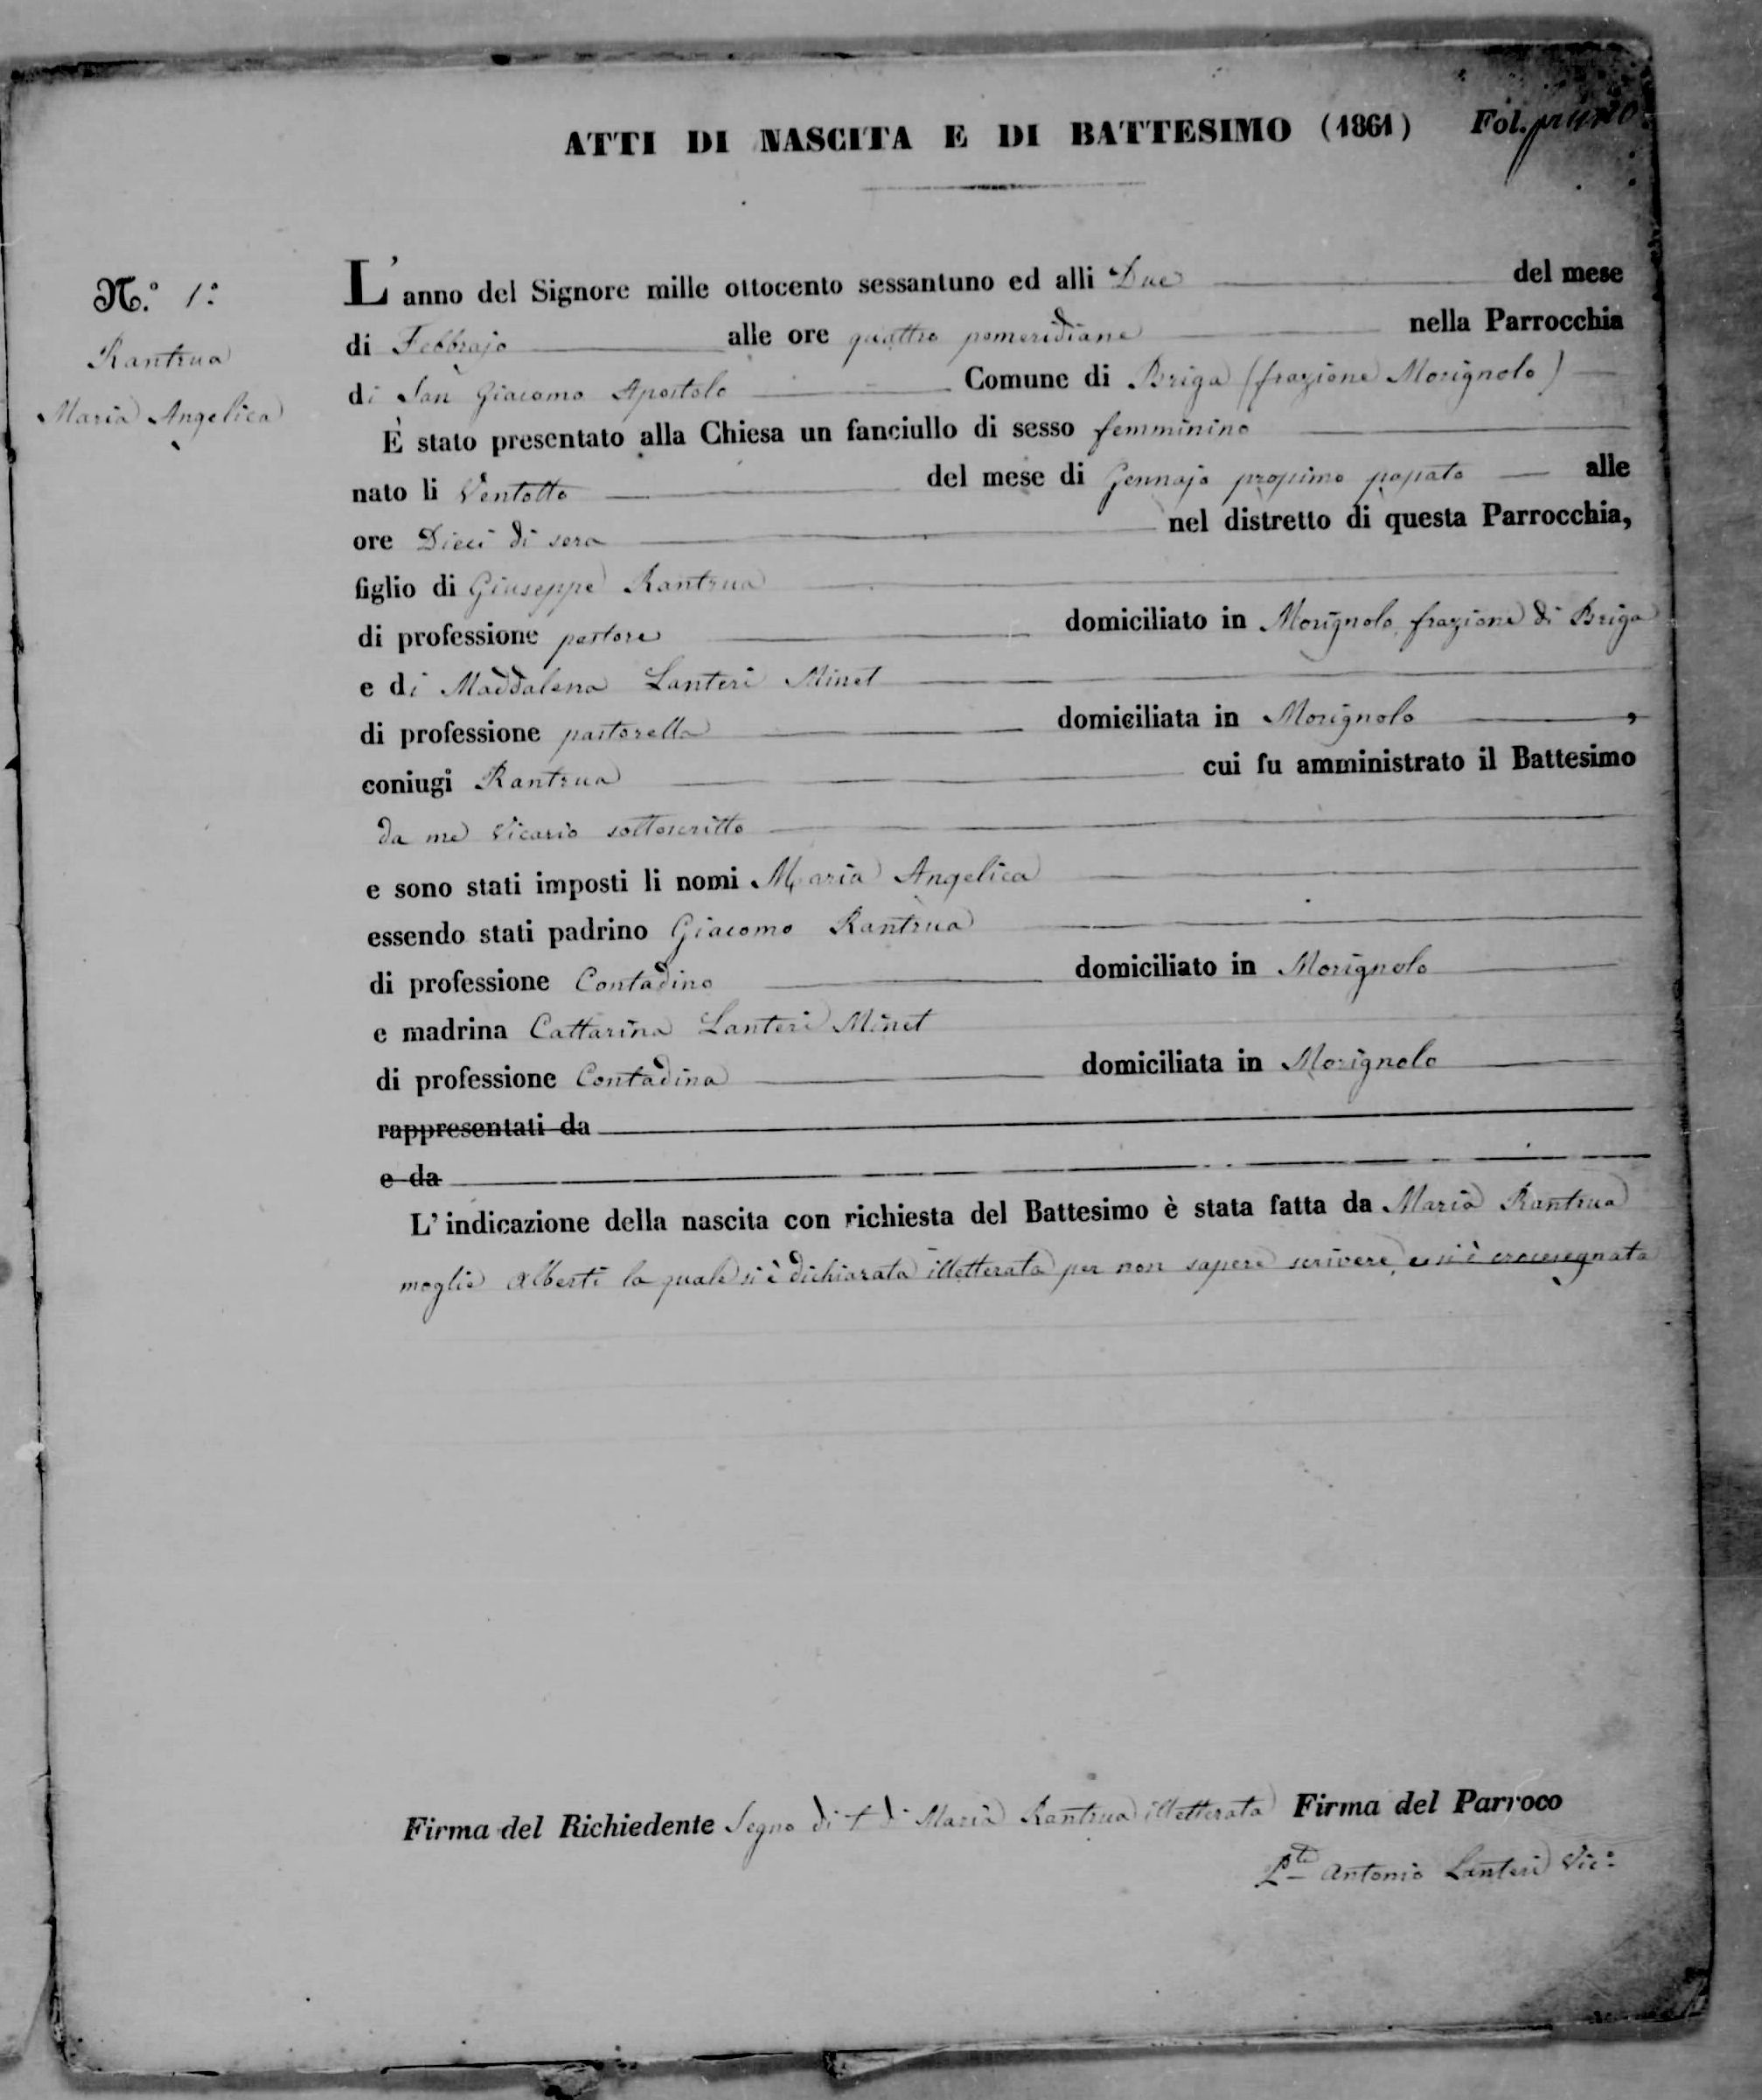 ATTI DI NASCITA E DI BATTESIMO (1861) Fol. primo
N.° 1.°
Rantrua
Maria Angelica
L'anno del Signore mille ottocento sessantuno ed alli Due del mese
di Febbrajo alle ore quattro pomeridiane nella Parrocchia
di San Giacomo Apostolo Comune di Briga (frazione Morignolo)
È stato presentato alla Chiesa un fanciullo di sesso femminino
nato li Ventotto del mese di Gennajo prossimo passato alle
ore Dieci di sera nel distretto di questa Parrocchia,
figlio di Giuseppe Rantrua
di professione pastore domiciliato in Morignolo, frazione di Briga
e di Maddalena Lanteri Minet
di professione pastorella domiciliata in Morignolo,
coniugi Rantrua cui fu amministrato il Battesimo
da me Vicario sottoscritto
e sono stati imposti li nomi Maria Angelica
essendo stati padrino Giacomo Rantrua
di professione Contadino domiciliato in Morignolo
e madrina Cattarina Lanteri Minet
di professione Contadina domiciliata in Morignolo
rappresentati da
e da
L'indicazione della nascita con richiesta del Battesimo è stata fatta da Maria Rantrua
moglie Alberti la quale si è dichiarata illetterata per non sapere scrivere, e si è crocesegnata
Firma del Richiedente Segno di + di Maria Rantrua illetterata Firma del Parroco
Pte Antonio Lanteri Vic.°